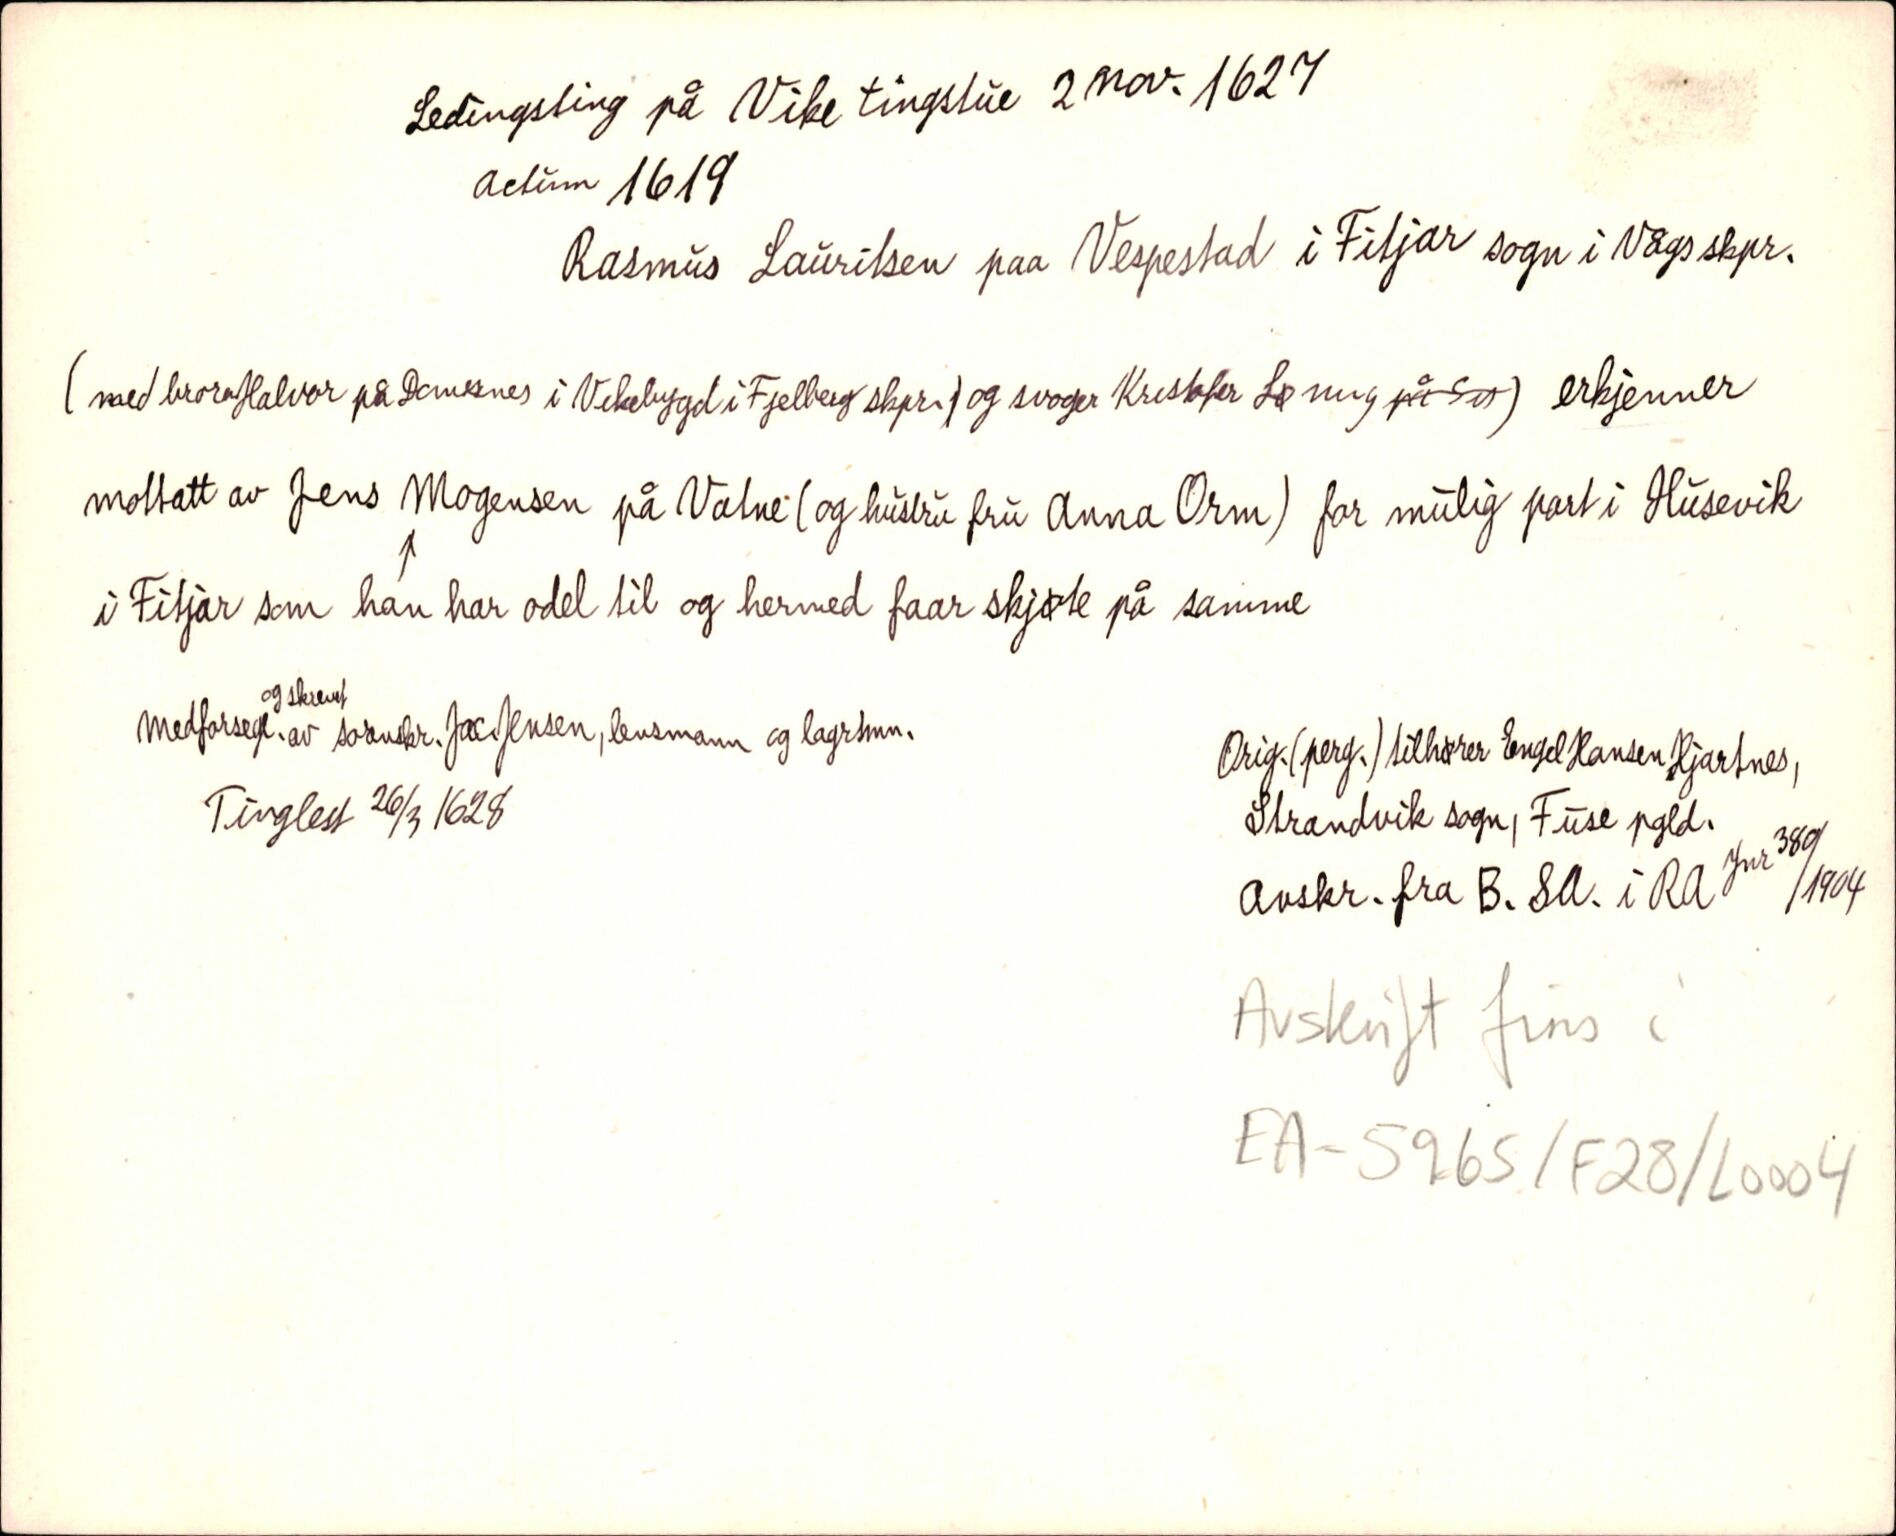 Ledingsting på Vike tingstue 2 nov. 1627
Actum 1619
Rasmus Lauritsen paa Vespestad i Fitjar sogn i Vågs skpr.
(med broren Halvor på Domesnes i Vikebygd i Fjelberg skpr.) og svoger Kristofer på) erkjenner
mottatt av Jens Mogensen på Vatne (og hustru fru Anna Orm) for mulig part i Husevik
i Fitjar som han har odel til og hermed faar skjøte på samme
og skrevet
Medforsegl. av sorenskr. Jac. Jensen, lensmann og lagrtmn.
Tinglest 26/3 1628
Orig. (perg.) tilhører Engel Hansen Hjartnes,
Strandvik sogn, Fuse pgld.
Avskr. fra B. SA. i RA Jnr 380/1904
Avskrift fins i
EA-5965/F28/L0004